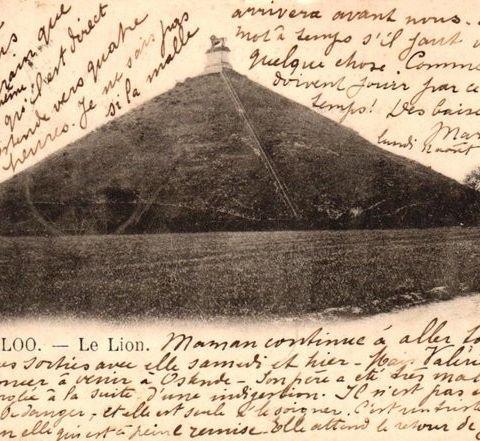 que
train
qu'il est direct
vers quatre
heures. Je ne sais pas
si la malle
arrivera avant nous.
mot à temps s'il faut
quelque chose. Comme
doivent jouir par ce
temps! Des
Mar
lundi août
LOO. — Le Lion. Maman continue à aller
sorties avec elle samedi et hier —
à venir à Ostende — Son père a été très mal
à la suite d'une indigestion. Il n'est pas
danger — et elle est seule à le soigner. C'est un
elle qui est à peine remise. Elle attend le retour de